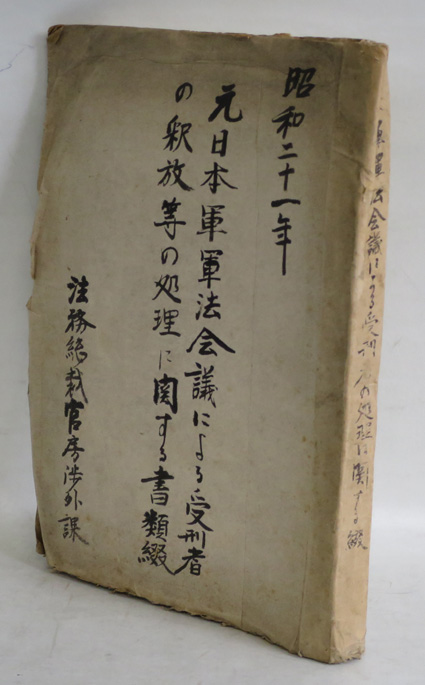 昭和二十一年
元日本軍軍法会議による受刑者
の釈放等の処理に関する書類綴
法務総裁官房渉外課
軍軍法会議による受刑者の処理に関する綴